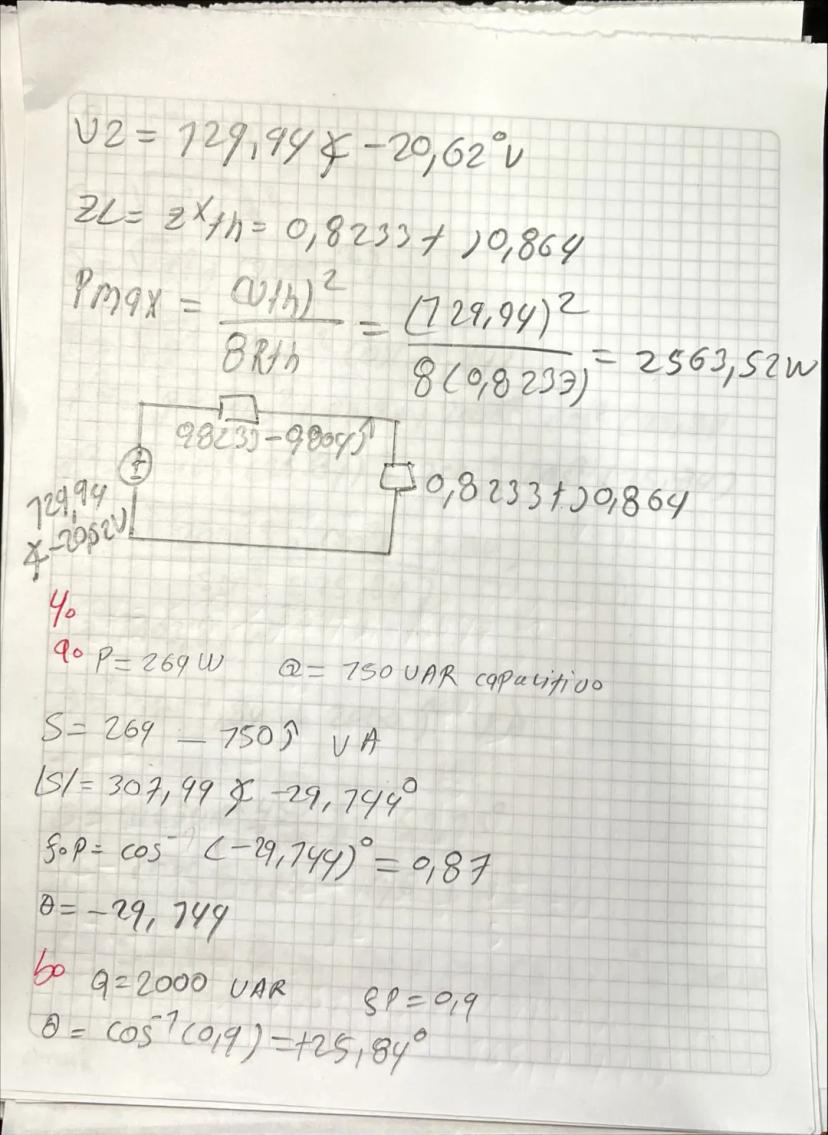 V2 = 129,94 ∡ -20,62° V
ZL = Z*th = 0,8233 + J0,864
Pmax = (Vth)² / 8Rth = (129,94)² / 8(0,8233) = 2563,52W
129,94 ∡ -20,62V
0,8233 + J0,864
4.
a. P = 269 W Q = 150 VAR capacitivo
S = 269 - 150J VA
|S| = 307,99 ∡ -29,144°
f.P = cos⁻¹ (-29,144)° = 0,87
θ = -29,144
b. Q = 2000 VAR fP = 0,9
θ = cos⁻¹(0,9) = +25,84°